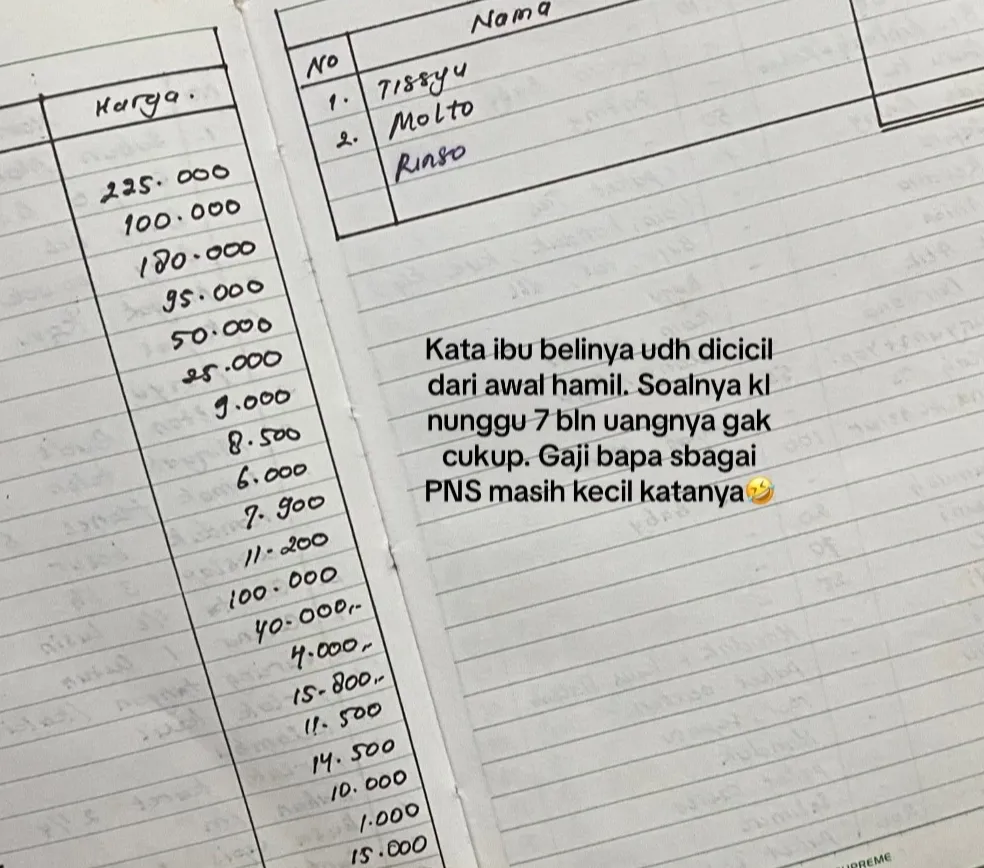 Harga.
225.000
100.000
180.000
95.000
50.000
25.000
9.000
8.500
6.000
7.900
11-200
100.000
40-000,-
4.000,-
15-800,-
11.500
14.500
10.000
1.000
15.000
No Nama
1. Tissyu
2. Molto
Rinso
Kata ibu belinya udh dicicil
dari awal hamil. Soalnya kl
nunggu 7 bln uangnya gak
cukup. Gaji bapa sbagai
PNS masih kecil katanya🤣